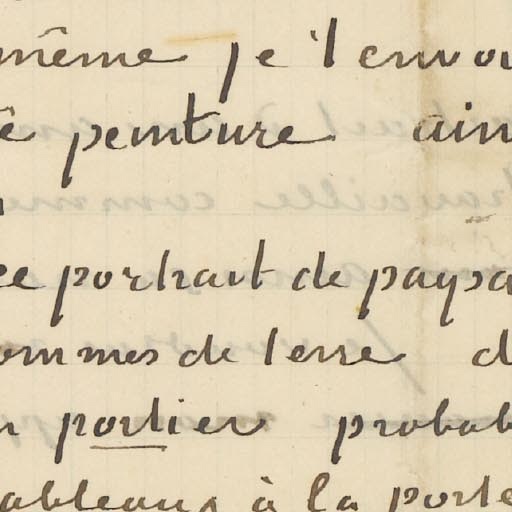 même je t'envoi
peinture ain
ce portrait de paysa
ommes de terre d
portier probab
ableaux à la porte